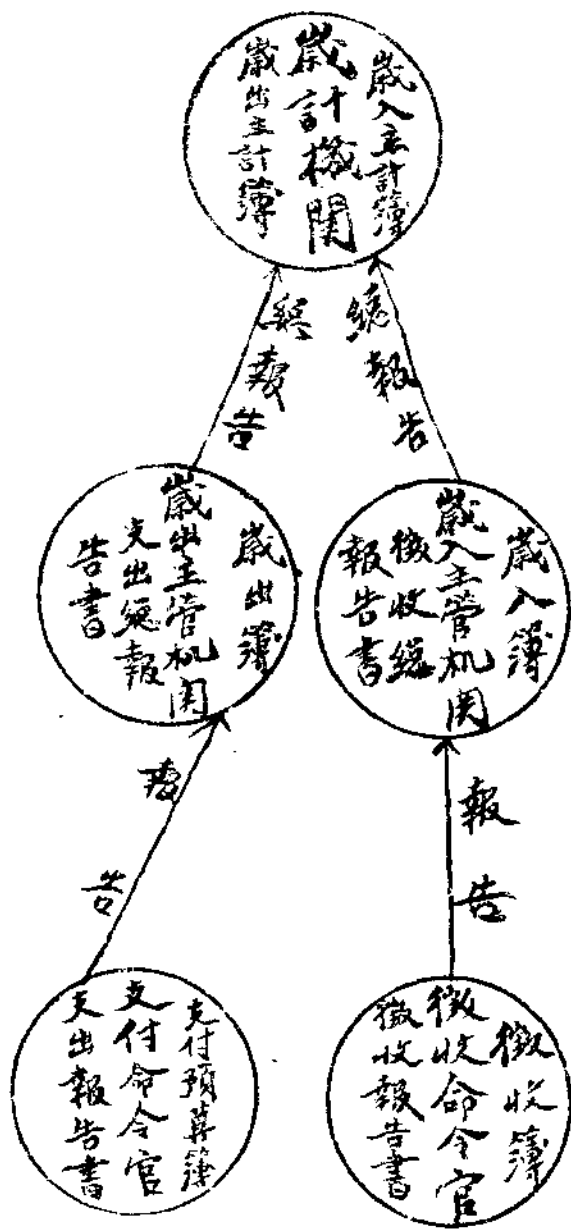 歳入主計簿
歳計機関
歳出主計簿
總報告
總報告
歳入簿
歳入主管机関
徴收總
報告書
歳出簿
歳出主管机関
支出總報
告書
報告
報告
徴收簿
徴收命令官
徴收報告書
支付預算簿
支付命令官
支出報告書